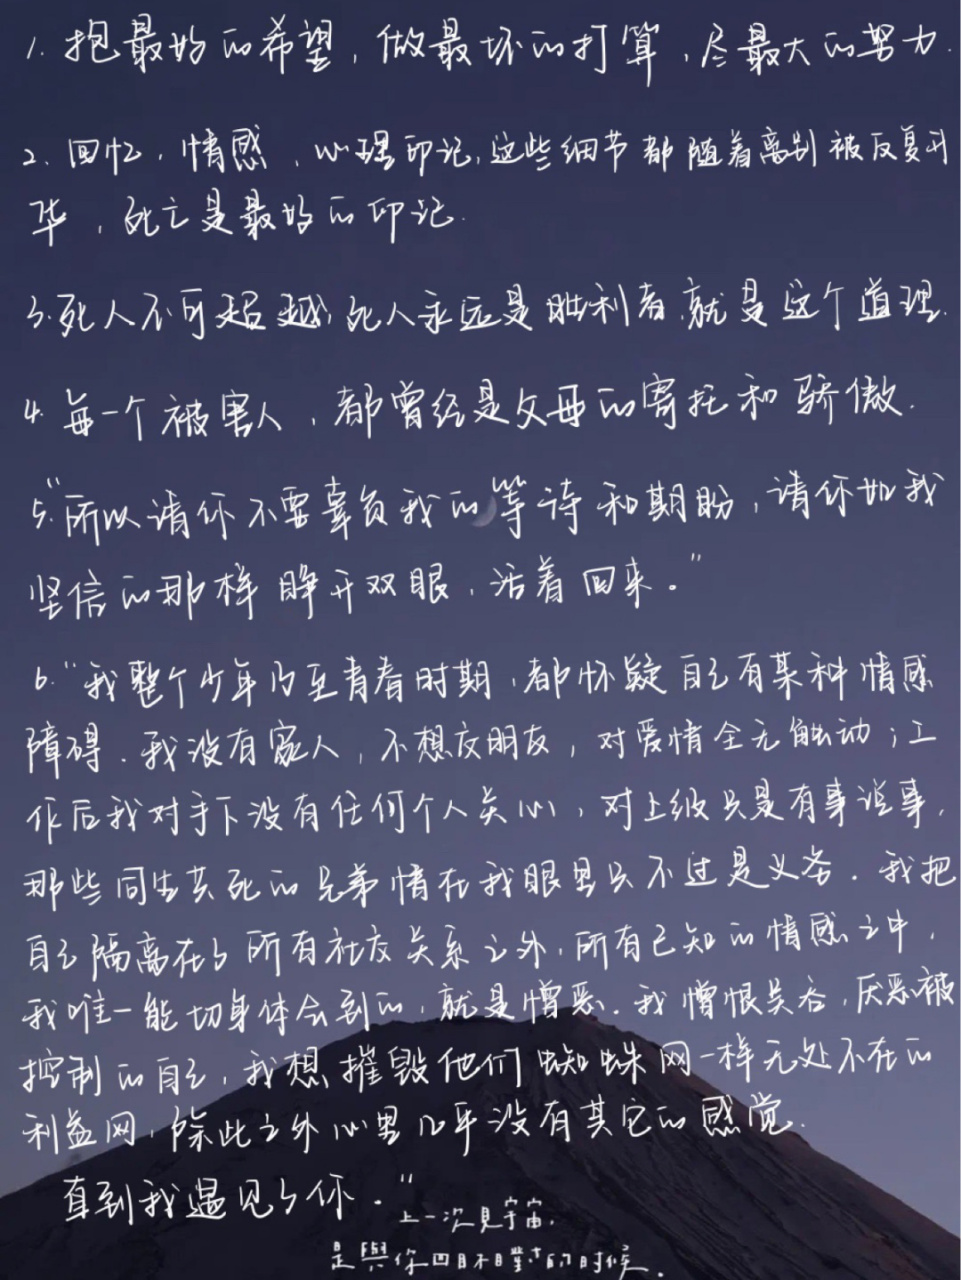 1. 抱最好的希望，做最坏的打算，尽最大的努力.
2. 回忆，情感，心理印记，这些细节都随着离别被反复升
华，死亡是最好的印记.
3. 死人不可超越，死人永远是胜利者，就是这个道理.
4. 每一个被害人，都曾经是父母的寄托和骄傲.
5. “所以请你不要辜负我的等待和期盼，请你如我
坚信的那样睁开双眼，活着回来。”
6. “我整个少年乃至青春时期，都怀疑自己有某种情感
障碍．我没有家人，不想交朋友，对爱情全无触动；工
作后我对手下没有任何个人关心，对上级只是有事说事，
那些同生共死的兄弟情在我眼里只不过是义务．我把
自己隔离在了所有社交关系之外，所有已知的情感之中，
我唯一能切身体会到的，就是憎恶．我憎恨吴吞，厌恶被
控制的自己，我想摧毁他们蜘蛛网一样无处不在的
利益网，除此之外心里几乎没有其它的感觉．
直到我遇见了你。”
上一次見宇宙，
是與你四目相對的时候．